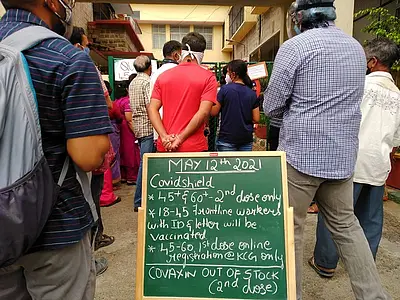 MAY 12TH, 2021
Covidshield
* 45+ & 60+ - 2nd dose only
* 18-45 Frontline workers
with ID & letter will be
vaccinated
* 45-60, 1st dose online
registration @ KCG only
COVAXIN OUT OF STOCK
(2nd dose)